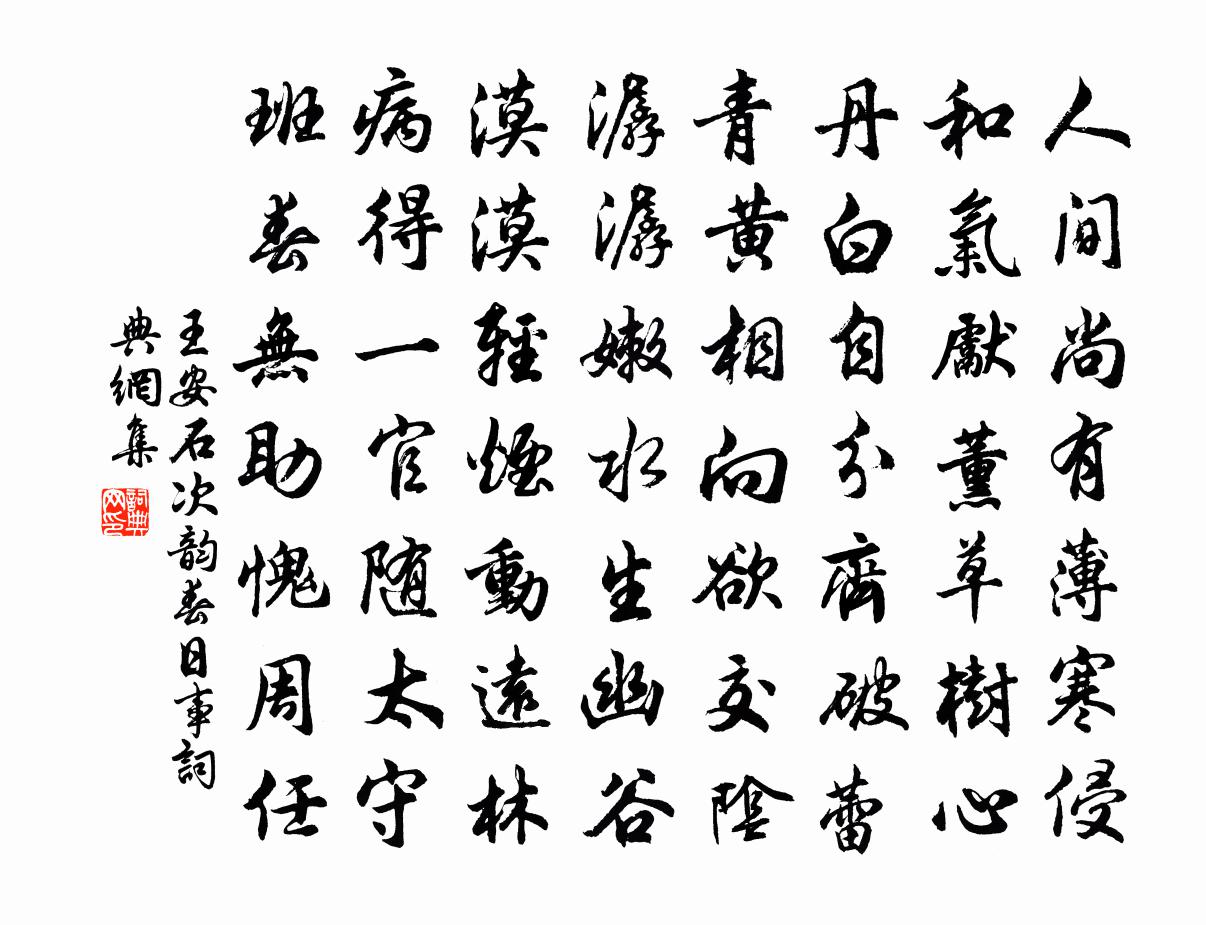 人間尚有薄寒侵
和氣獻薰草樹心
丹白自分齊破蕾
青黃相向欲交陰
潺潺嫩水生幽谷
漠漠輕煙動遠林
病得一官隨太守
班春無助愧周任
王安石次韵春日事詞
典網集
詞典
网印